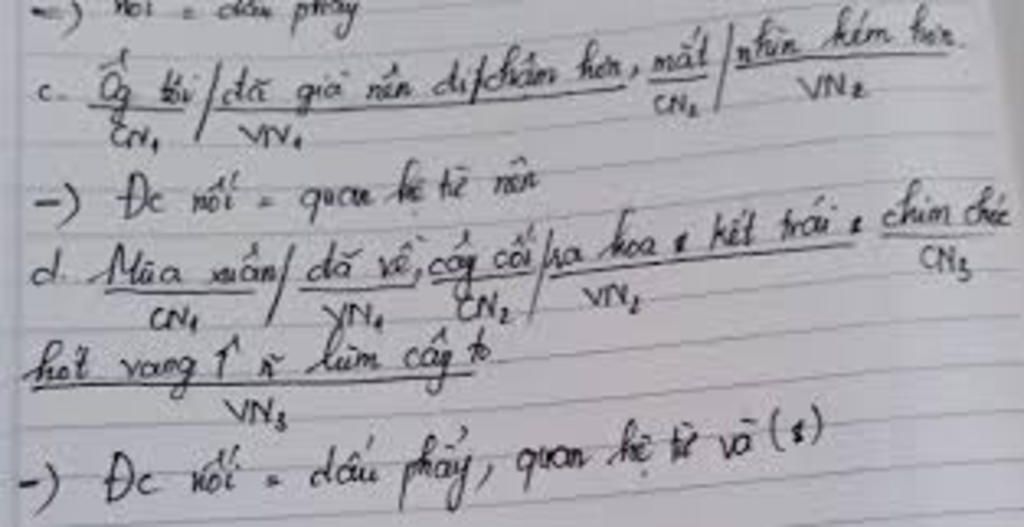 =) nối = dấu phẩy
c. Ôg tôi / đã già nên đi / chậm hơn, mắt / nhìn kém hơn.
CN₁ VN₁ CN₂ VN₂
-) Đc nối = quan hệ từ nên
d. Mùa xuân / đã về, cây cối / ra hoa & kết trái & chim chóc
CN₁ VN₁ CN₂ VN₂ CN₃
hót vang ~ lùm cây to
VN₃
-) Đc nối = dấu phẩy, quan hệ từ và (&)